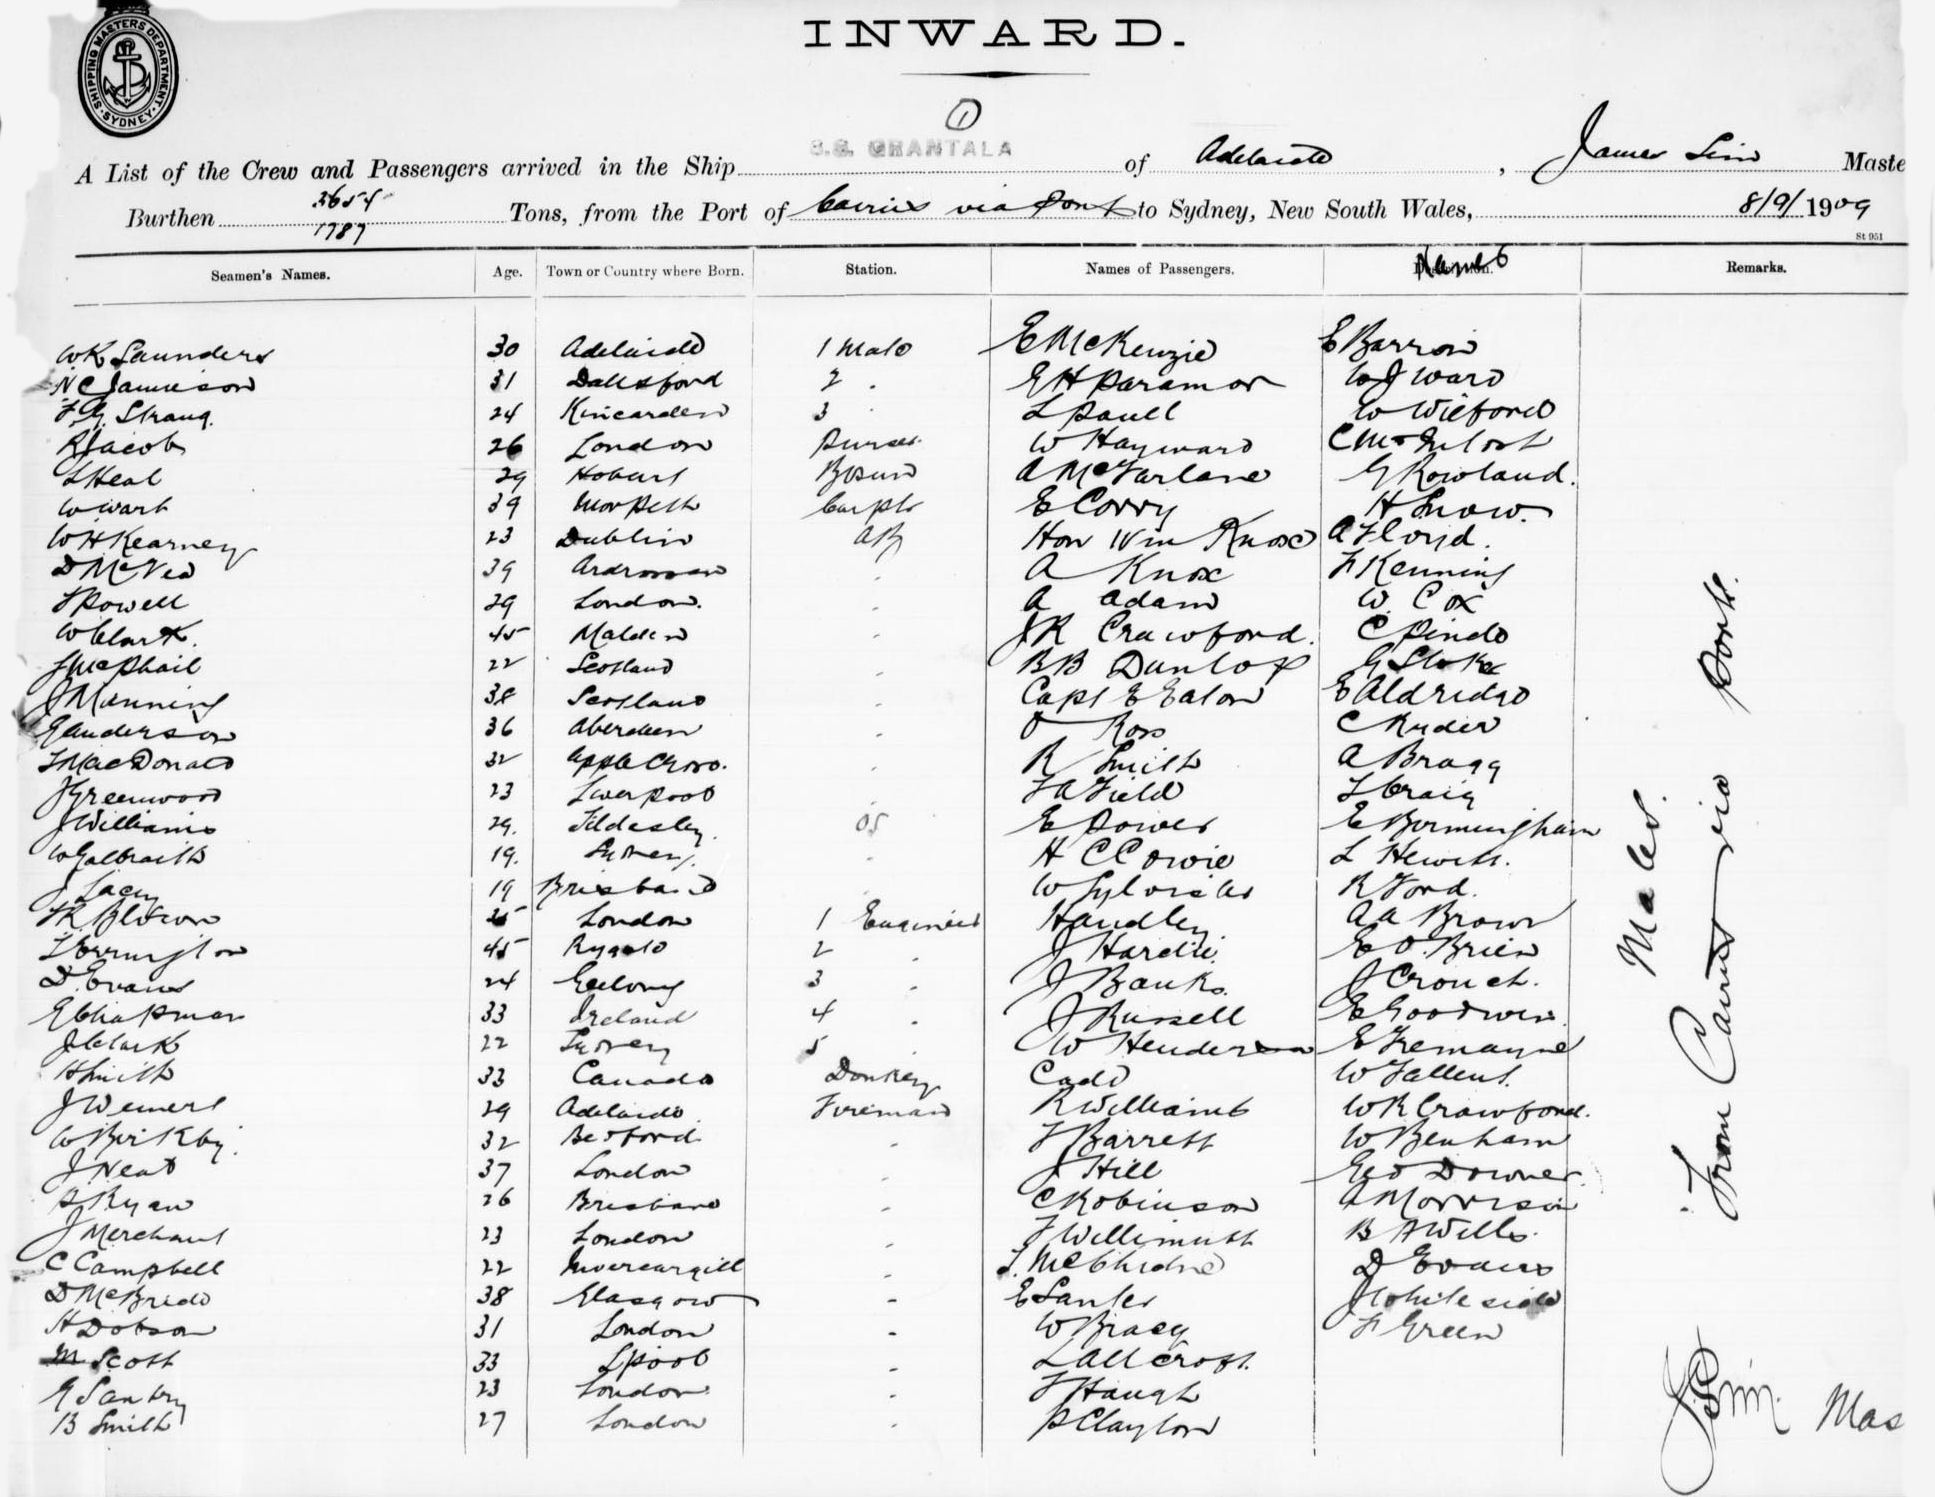 SHIPPING MASTERS DEPARTMENT SYDNEY
INWARD.
1
A List of the Crew and Passengers arrived in the Ship S.S. GRANTALA of Adelaide, James Sim Maste
Burthen 3654 1787 Tons, from the Port of Cairns via Ports to Sydney, New South Wales, 8/9/1909
St 951
Seamen's Names. Age. Town or Country where Born. Station. Names of Passengers. Names Remarks.
W K Saunders 30 Adelaide 1 Mate E McKenzie E Barron
N C Jamieson 31 2 " E H Paramor W J Ward
F. G. Strang. 24 Kincarden 3 " L Paull W Wilford
R Jacob 26 London Purser W Hayward C McIntosh
L Heal 29 Hobart Bosun A McFarlane G Rowland.
W Wark 39 Morpeth Carptr E Corry H Snow.
W H Kearney 23 Dublin AB Hon Wm Knox A Floyd.
D McVea 39 Ardrossan " A Knox F Kenning
F Powell 29 London. " A Adam W. Cox
W Clark. 45 Malden " J R Crawford. C Pindo
J McPhail 22 Scotland " B B Dunlop G Stoke
J Manning 38 Scotland " Capt E Eaton E Aldridge
G Anderson 36 Aberdeen " Ross C Ryder
F MacDonald 32 " R Smith A Bragg
J Greenwood 23 Liverpool " F A Field F Craig
J Williams 29. Tildesley. OS E Power E Bormingham
W Galbraith 19. Sydney. " H C Cowie L Hewitt.
J Lacey 19 Brisbane W Sylvister R Ford.
London 1 Engineer Handley A A Brown
45 2 " J Hardie. E O'Brien
D. Evans 24 Geelong 3 " J Banks. J Crouch.
E Chapman 33 Ireland 4 " J Russell E Goodwin.
J Clark 22 Sydney 5 " W Henderson E Tremayne
H Smith 33 Canada Donkey Cadd W Tallent.
J Wemert 29 Adelaide Fireman R Williams W R Crawford.
W Birkby. 32 Bedford " F Barrett W Benham
J Neat 37 London " J Hill Geo Downer.
Ryan 26 Brisbane " C Robinson A Morrison
J Merchant 23 London " F Willimott B A Wills.
C Campbell 22 Invercargill " D Evans
D McBride 38 Glasgow - E J Whiteside
H Dobson 31 London - W Bracy F Green
Scott 33 Lpool - L Allcroft.
G Santry 23 London " F Haugh
B Smith 27 London " P Clayton
Males.
From Cairns via Ports.
J Sim. Mas